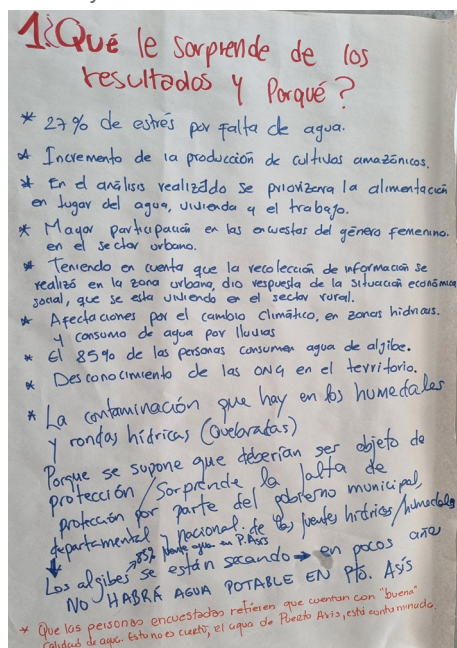 1¿Qué le sorprende de los
resultados y Porqué?
* 27% de estrés por falta de agua.
* Incremento de la producción de cultivos amazónicos.
* En el análisis realizado se priorizarra la alimentación
en lugar del agua, vivienda y el trabajo.
* Mayor participación en las encuestas del género femenino.
en el sector urbano.
* Teniendo en cuenta que la recolección de información se
realizó en la zona urbana, dio respuesta de la situación económica
social, que se esta viviendo en el sector rural.
* Afectaciones por el cambio climático, en zonas hidricas.
y consumo de agua por lluvias
* El 85% de las personas consumen agua de aljibe.
* Desconocimiento de las ONG en el territorio.
* La contaminación que hay en los humedales
y rondas hídricas (Quebradas)
Porque se supone que deberían ser objeto de
protección / Sorprende la falta de
protección por parte del gobierno municipal,
departamental y nacional. de las fuentes hídricas / humedales
85% agua en P. Asís
Los aljibes se están secando → en pocos años
NO HABRÁ AGUA POTABLE EN Pto. Asís
* Que las personas encuestadas refieren que cuentan con "buena"
calidad de agua. Esto no es cierto, el agua de Puerto Asís, está contaminada.